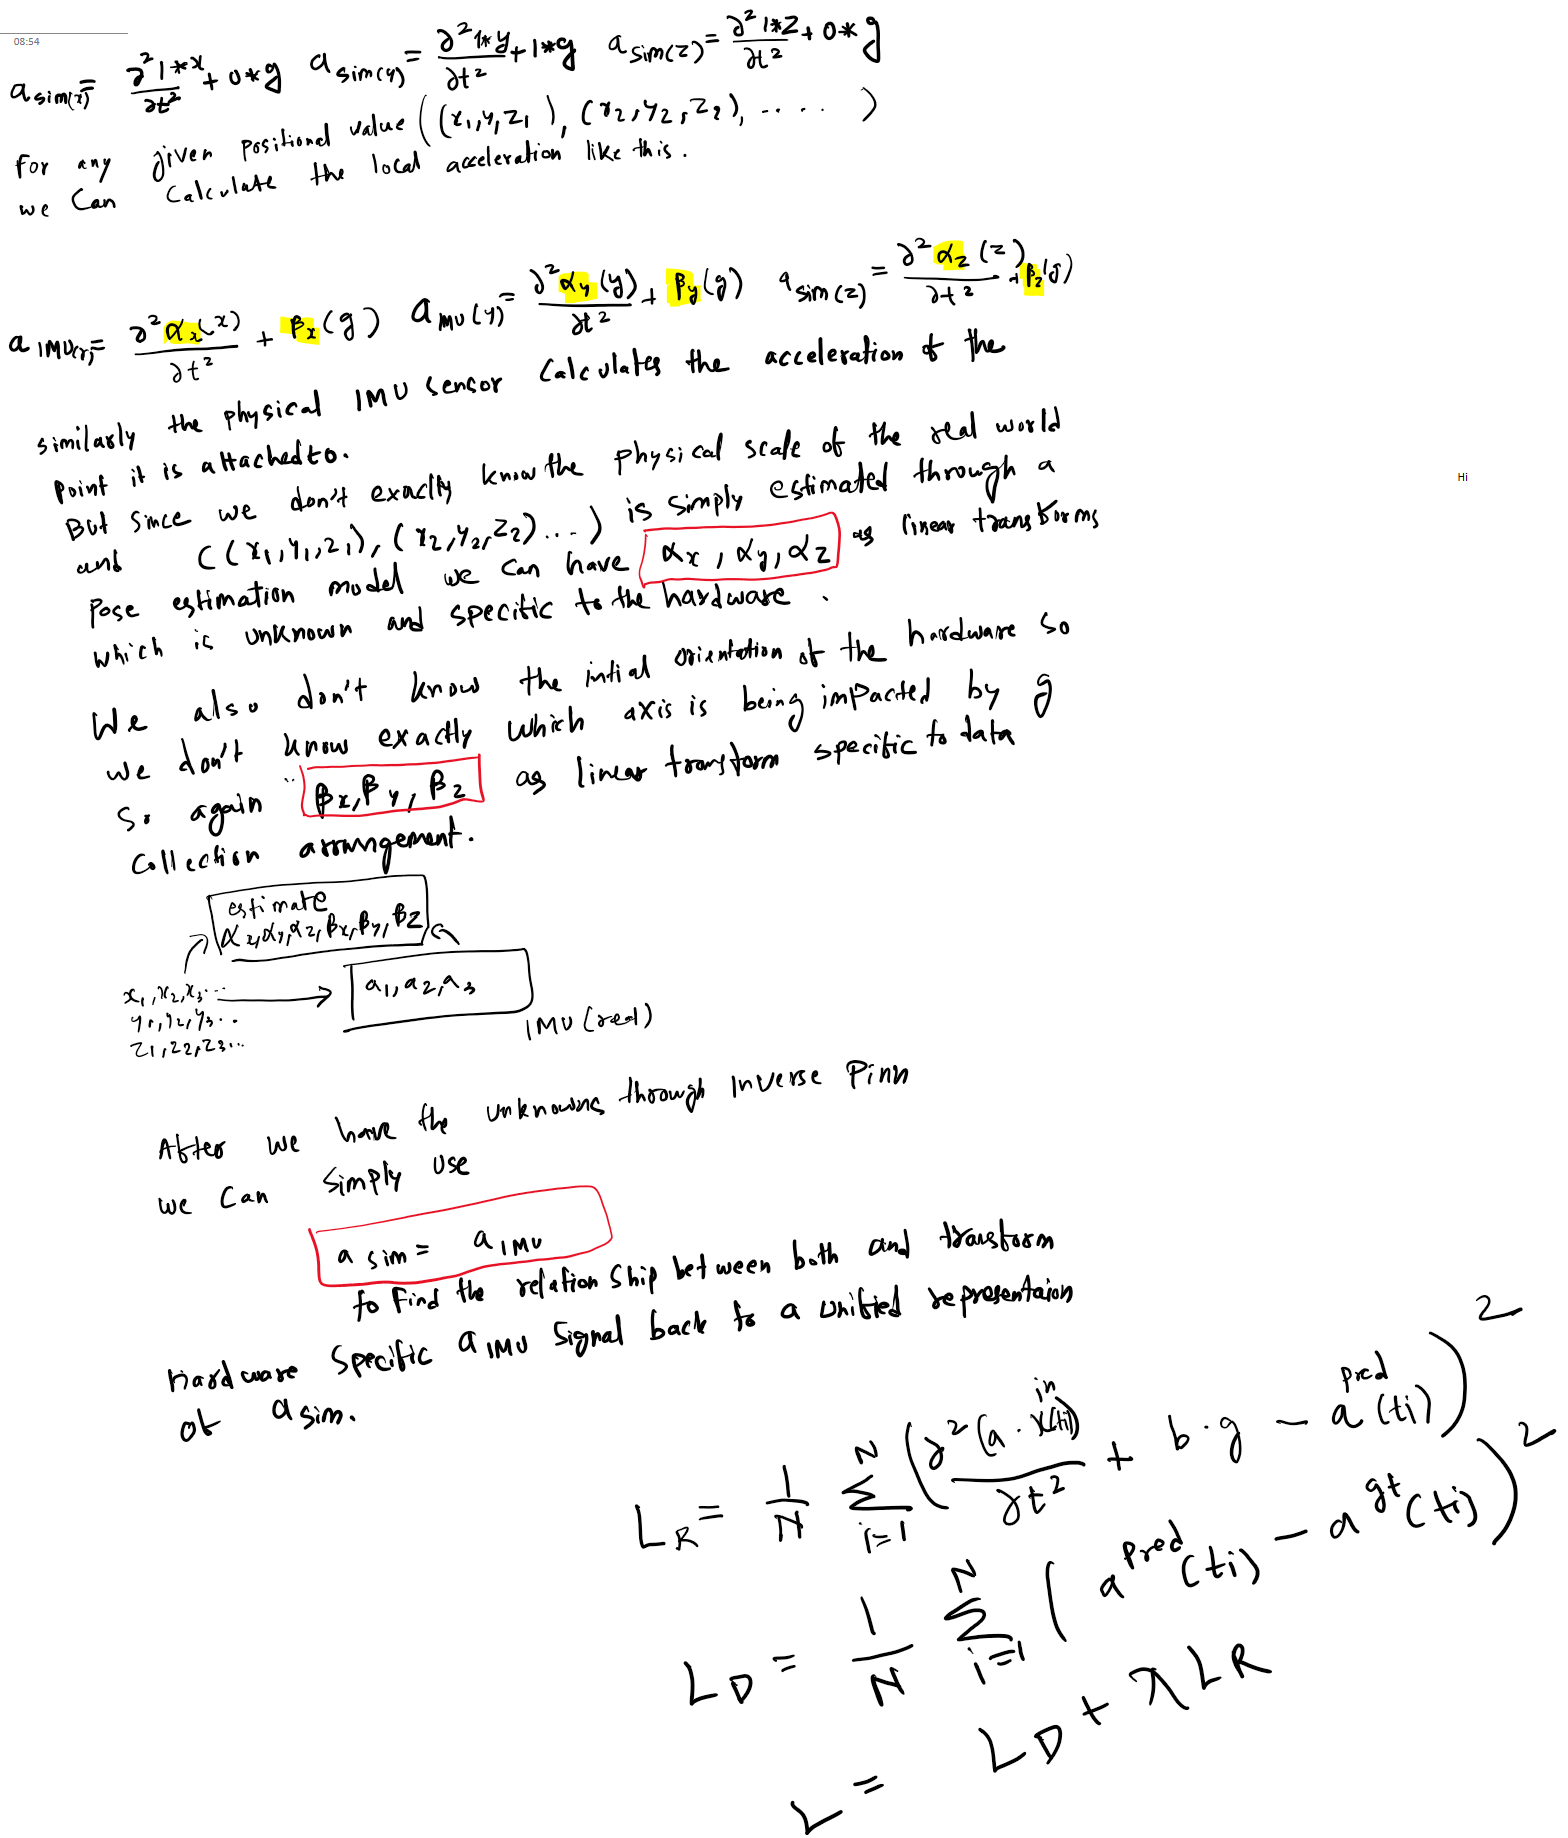 08:54
a sim(x) = ∂²1*x/∂t² + 0*g a sim(y) = ∂²1*y/∂t² + 1*g a sim(z) = ∂²1*z/∂t² + 0*g
For any given positional value ((x₁,y,z₁), (x₂,y₂,z₂), ..... )
we Can Calculate the local acceleration like this.
a IMU(x) = ∂²αx(x)/∂t² + βx(g) a MU(y) = ∂²αy(y)/∂t² + βy(g) a sim(z) = ∂²αz(z)/∂t² + βz(g)
similarly the physical IMU sensor Calculates the acceleration of the
point it is attached to.
But since we don't exactly know the physical scale of the real world
and ((x₁,y₁,z₁),(x₂,y₂,z₂)...) is simply estimated through a
Pose estimation model we can have αx, αy, αz as linear transforms
which is unknown and specific to the hardware.
Hi
We also don't know the intial orientation of the hardware so
we don't know exactly which axis is being impacted by g
So again βx, βy, βz as linear transform specific to data
Collection arrangement.
estimate
αx,αy,αz,βx,βy,βz
x₁,x₂,x₃...
y₁,y₂,y₃..
z₁,z₂,z₃...
a₁,a₂,a₃
IMU (real)
After we have the unknowns through Inverse Pinn
we can simply use
a sim = a IMU
to find the relationship between both and transform
Hardware specific a IMU signal back to a unified representaion
of a sim.
L_R = 1/N Σ_{i=1}^{N} (∂²(a · x^{in}(ti))/∂t² + b·g − a^{pred}(ti))²
L_D = 1/N Σ_{i=1}^{N} (a^{pred}(ti) − a^{gt}(ti))²
L = L_D + λ L_R